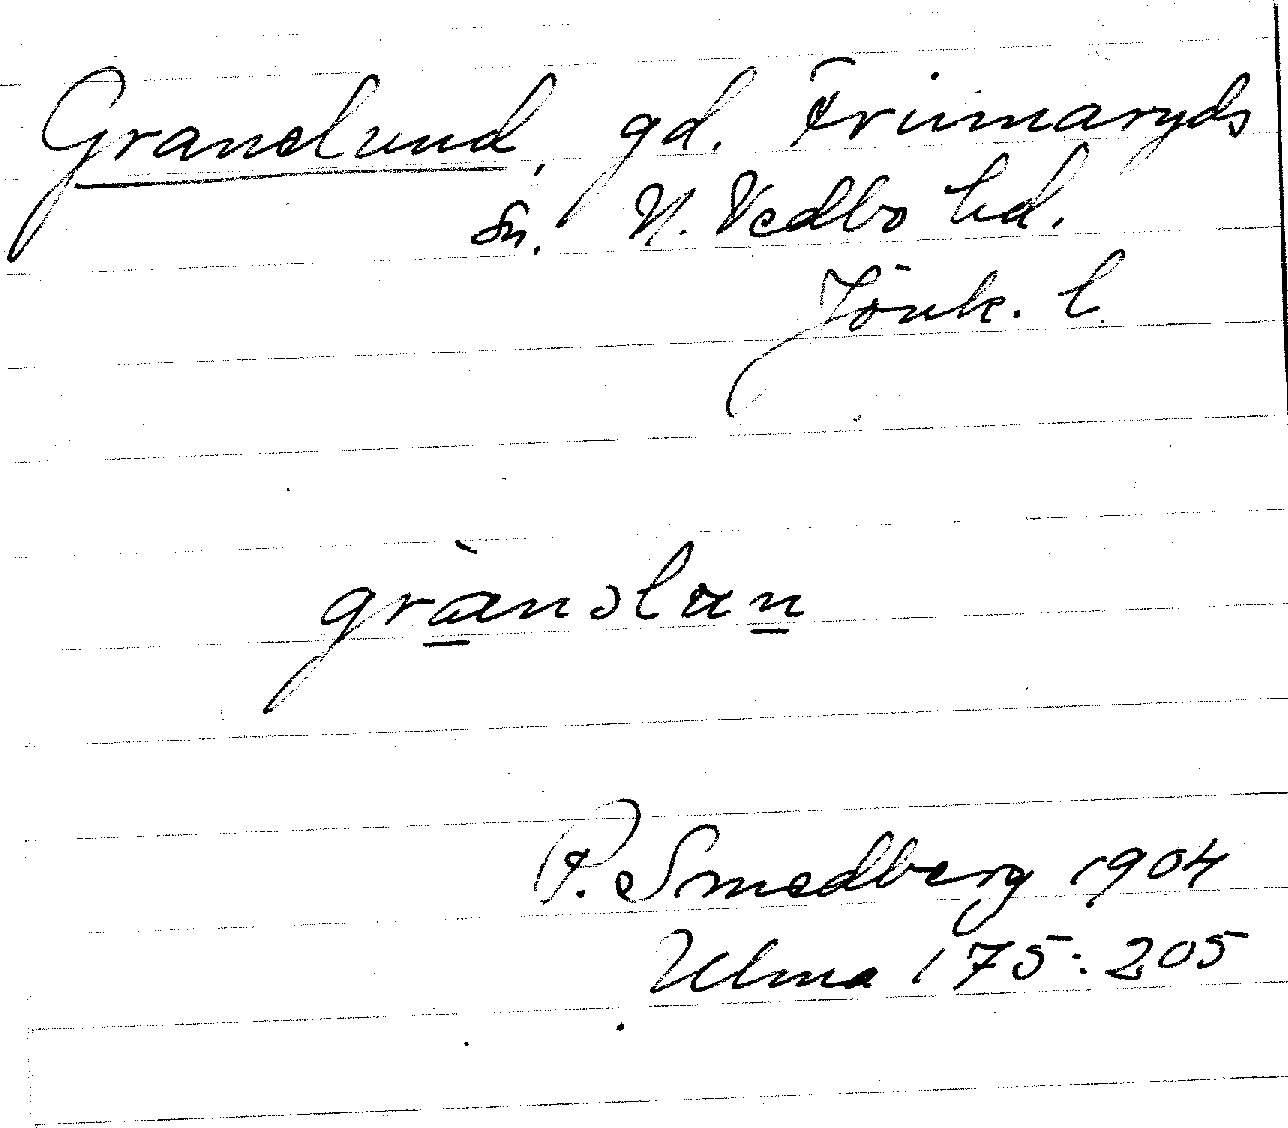 Granelund, gd. Frinnaryds
sn. N. Vedbo hd.
Jönk. l.
grànəlan
P. Smedberg 1904
Ulma 175:205